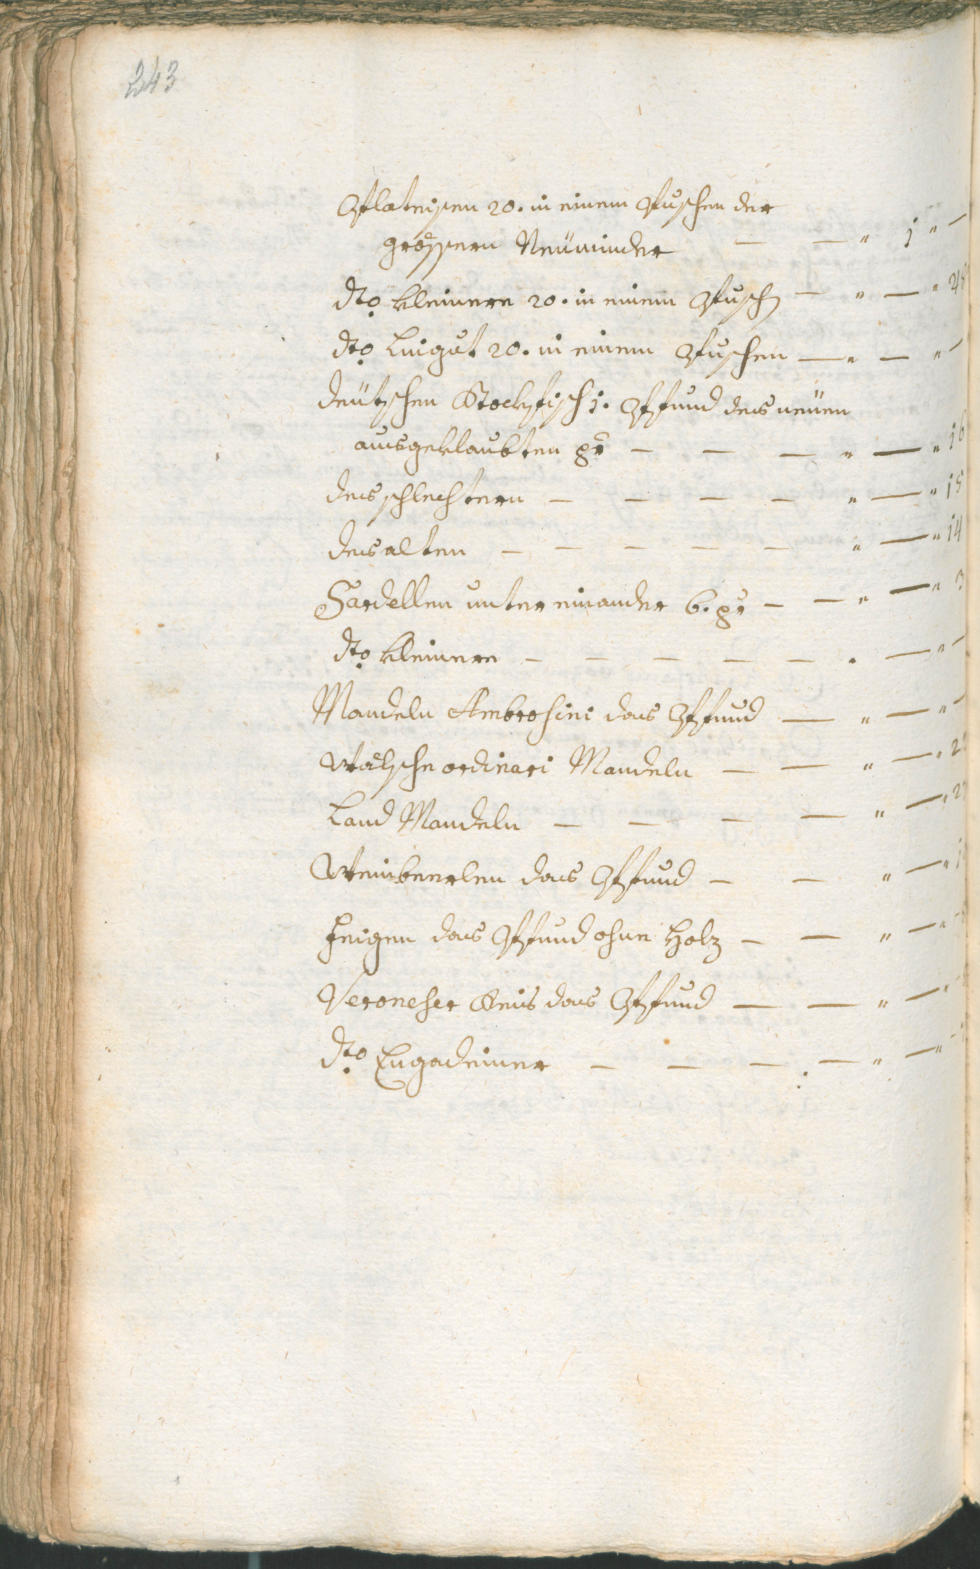 243
Plateisen 20. in einem Puschen der
grössern Neüminder — — " 1 " —
dto kleinere 20. in einem Pusch — " — "
dto 20. in einem Puschen — " — " —
deütschen Stockfisch 1. Pfund des neüen
ausgeklaubten pr — — — " — " 16
des schlechtern — — — — — " — " 15
des alten — — — — — — " — " 14
Sardellen untereinander 6. pr — — " — " 3
dto kleinere — — — — — — " — " —
Mandeln Ambrosini das Pfund — " — " —
Wälsche ordinari Mandeln — — " — "
Land Mandeln — — — — " — "
Weinbeerlen das Pfund — — " — "
Feigen das Pfund ohne Holz — — " — "
Veroneser Reis das Pfund — — " — "
dto Engadeiner — — — — " — "